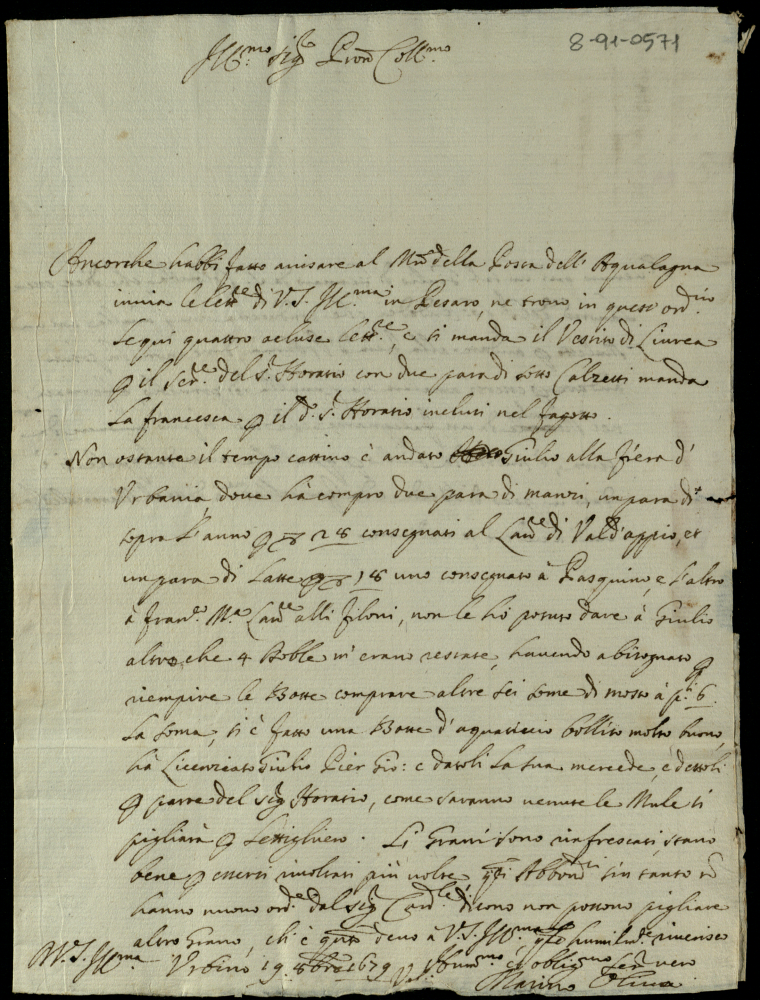 8-91-0571
Ill.mo Sig.r Pron Coll.mo
Ancorche habbi fatto avisare al M.ro della Posta dell'Aqualagna
invia le lett.e di V.S. Ill.ma in Pesaro, ne trovo in quest'ord.rio
le qui quattro acluse lett.e, e si manda il Vestito di Livrea
p il Ser.e del S.r Horatio con due para di sotto Calzetti manda
la francesca p il d.o S.r Horatio inclusi nel fagotto.
Non ostante il tempo cattivo è andato Giulio alla fiera d'
Urbania dove hà compro due para di manzi, un para di
sopra l'anno p 28 consegnati al Lav.e di Vald'appio, et
un para di Latte p 18 uno consegnato à Pasquino, e l'altro
à Fran.o M.a Lav.e alli filoni, non le hò potuto dare à Giulio
altro che 4 Doble vi erano restate, havendo abisognato p
riempire le Botte comprare altre sei some di mosto à p.li 6
la soma, si è fatto una Botte d'aquaticcio bollito molto buono,
hà Licenziato Giulio Pier Gio: e datoli la sua mercede, e dettoli
p parte del Sig.r Horatio, come saranno venute le Mule si
pigliarà p Lettighiero. Li Grani sono rinfrescati, stano
bene p essersi rivoltati più volte q.ti Abbond.ti sin tanto nō
hanno nuovo ord.e dal Sig.r Card.le dicono non possono pigliare
altro Grano, ch'è q.nto devo à V.S. Ill.ma q.le humilm.te riverisco
Urbino 19 8bre 1679 Di V.S. Ill.ma
Hum.mo et oblig.mo Ser.re vero
Marino Oliva